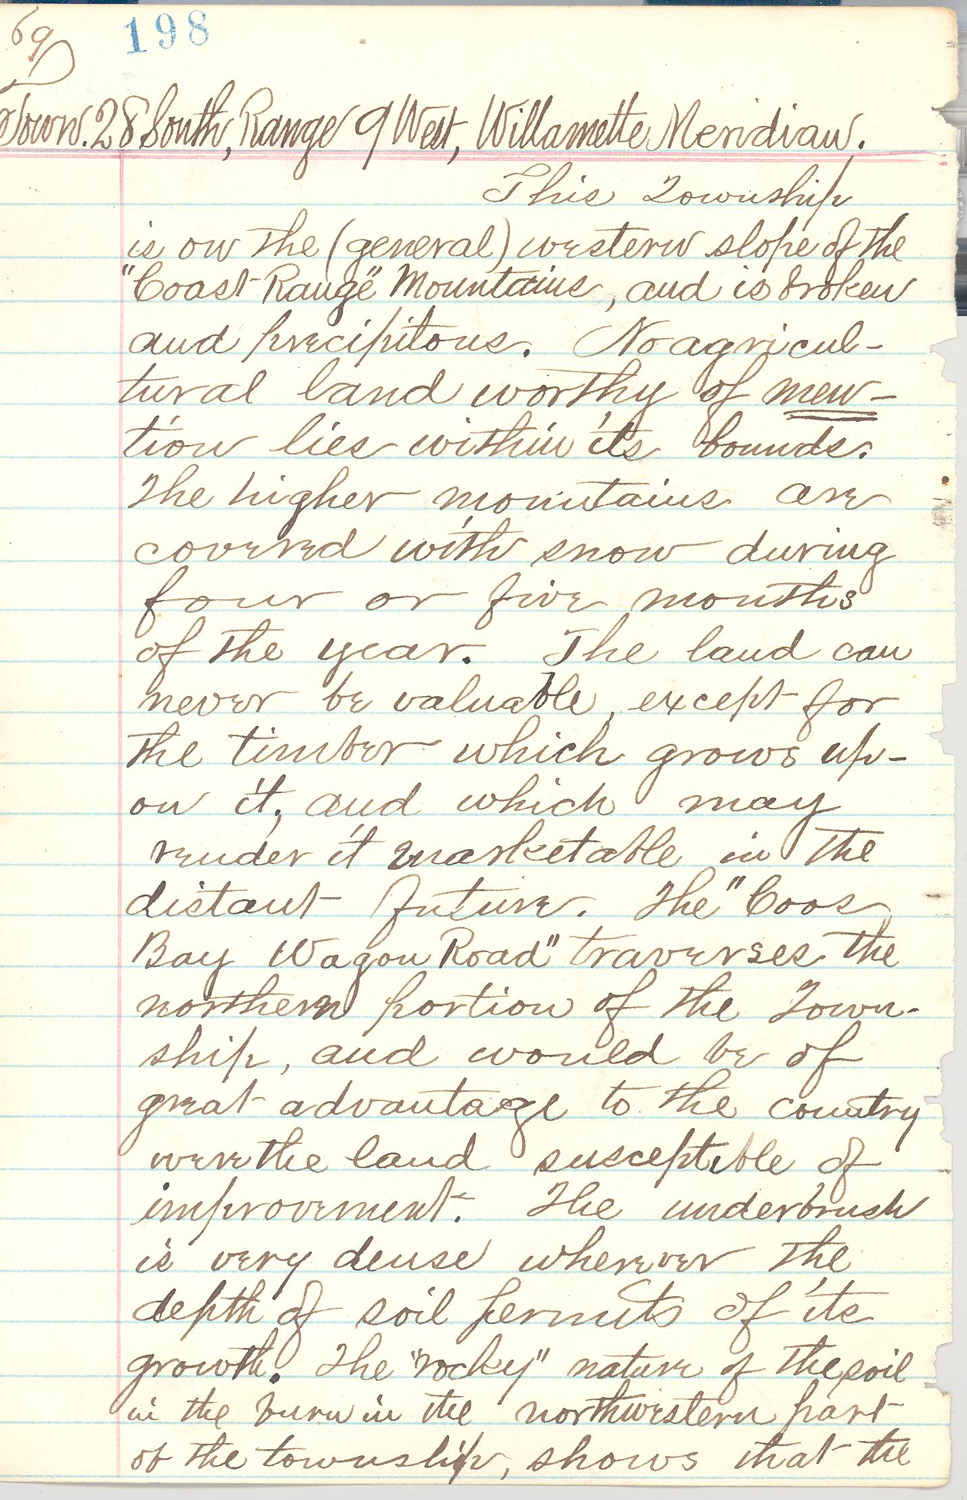 69
198
Town. 28 South, Range 9 West, Willamette Meridian.
This Township
is on the (general) western slope of the
"Coast Range" Mountains, and is broken
and precipitous. No agricul-
tural land worthy of men-
tion lies within its bounds.
The higher mountains are
covered with snow during
four or five months
of the year. The land can
never be valuable, except for
the timber which grows up-
on it, and which may
render it marketable in the
distant future. The "Coos
Bay Wagon Road" traverses the
northern portion of the Town-
ship, and would be of
great advantage to the country
were the land susceptible of
improvement. The underbrush
is very dense wherever the
depth of soil permits of its
growth. The "rocky" nature of the soil
in the burn in the northwestern part
of the township, shows that the